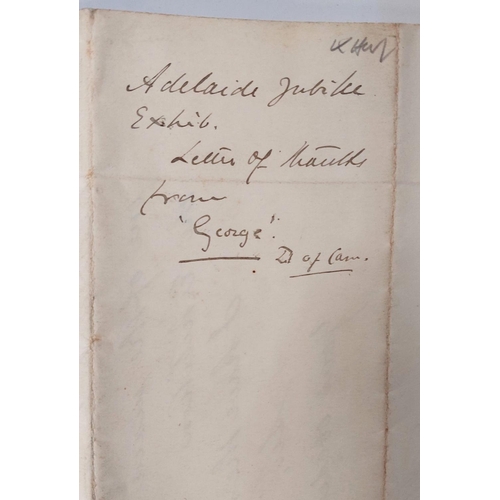 Adelaide Jubilee
Exhib.
Letter of thanks
from
"George".
D of Cam.